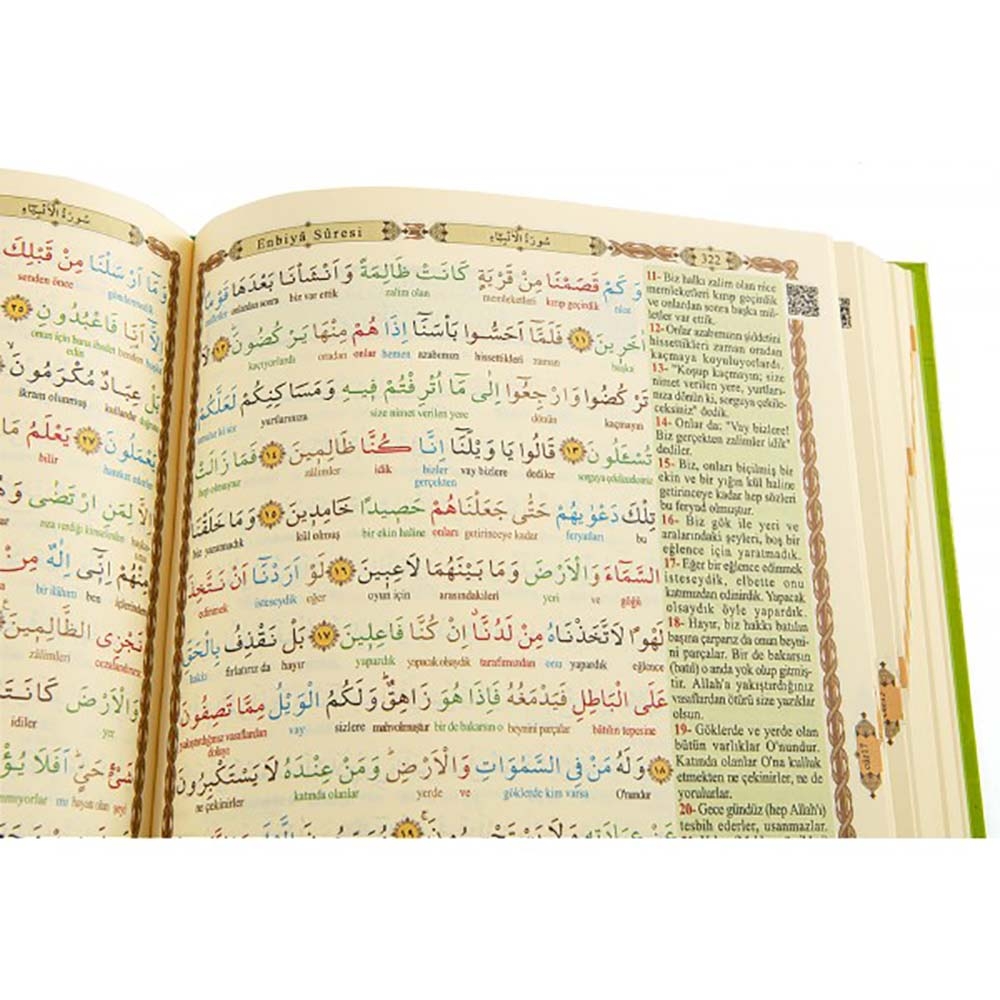 Enbiyâ Sûresi
سُورَةُ الْاَنْبِيَاءِ
322
وَكَمْ قَصَمْنَا مِنْ قَرْيَةٍ كَانَتْ ظَالِمَةً وَاَنْشَأْنَا بَعْدَهَا قَوْمًا
nice kırıp geçirdik memleketleri zalim olan biz var ettik onlardan sonra
اٰخَرِينَ ﴿١١﴾ فَلَمَّٓا اَحَسُّوا بَأْسَنَٓا اِذَا هُمْ مِنْهَا يَرْكُضُونَ ﴿١٢﴾ لَا
başka zaman hissettikleri azabımızın hemen onlar oradan kaçıyorlardı
تَرْكُضُوا وَارْجِعُٓوا اِلٰى مَٓا اُتْرِفْتُمْ فِيهِ وَمَسَاكِنِكُمْ لَعَلَّكُمْ
kaçmayın dönün size nimet verilen yere yurtlarınıza
تُسْـَٔلُونَ ﴿١٣﴾ قَالُوا يَا وَيْلَنَٓا اِنَّا كُنَّا ظَالِمِينَ ﴿١٤﴾ فَمَا زَالَتْ
sorguya çekileceksiniz dediler vay bizlere bizler gerçekten idik zâlimler hep olmuyor
تِلْكَ دَعْوٰيهُمْ حَتّٰى جَعَلْنَاهُمْ حَصِيدًا خَامِدِينَ ﴿١٥﴾ وَمَا خَلَقْنَا
bu feryatları getirinceye kadar onları bir ekin haline kül olmuş biz yaratmadık
السَّمَٓاءَ وَالْاَرْضَ وَمَا بَيْنَهُمَا لَاعِبِينَ ﴿١٦﴾ لَوْ اَرَدْنَٓا اَنْ نَتَّخِذَ
göğü ve yeri arasındakileri oyun için eğer isteseydik edinmek
لَهْوًا لَاتَّخَذْنَاهُ مِنْ لَدُنَّٓا اِنْ كُنَّا فَاعِلِينَ ﴿١٧﴾ بَلْ نَقْذِفُ بِالْحَقِّ
eğlence yapardık onu tarafımızdan yapacak olsaydık yapardık hayır fırlatırız da hakkı
عَلَى الْبَاطِلِ فَيَدْمَغُهُ فَاِذَا هُوَ زَاهِقٌ وَلَكُمُ الْوَيْلُ مِمَّا تَصِفُونَ
bâtılın tepesine beynini parçalar bir de bakarsın o mahvolmuştur sizlere vay yakıştırdığınız vasıflardan dolayı
﴿١٨﴾ وَلَهُ مَنْ فِى السَّمٰوَاتِ وَالْاَرْضِ وَمَنْ عِنْدَهُ لَا يَسْتَكْبِرُونَ
O'nundur göklerde kim varsa ve yerde katında olanlar ne çekinirler
عَنْ عِبَادَتِهِ وَلَا يَسْتَحْسِرُونَ ﴿١٩﴾
11- Biz halkı zalim olan nice
memleketleri kırıp geçirdik
ve onlardan sonra başka mil-
letler var ettik.
12- Onlar azabımızın şiddetini
hissettikleri zaman oradan
kaçmaya koyuluyorlardı.
13- "Koşup kaçmayın; size
nimet verilen yere, yurtları-
nıza dönün ki, sorguya çekile-
ceksiniz" dedik.
14- Onlar da; "Vay bizlere!
Biz gerçekten zalimler idik"
dediler.
15- Biz, onları biçilmiş bir
ekin ve bir yığın kül haline
getirinceye kadar hep sözleri
bu feryad olmuştur.
16- Biz gök ile yeri ve
aralarındaki şeyleri, boş bir
eğlence için yaratmadık.
17- Eğer bir eğlence edinmek
isteseydik, elbette onu
katımızdan edinirdik. Yapacak
olsaydık öyle yapardık.
18- Hayır, biz hakkı batılın
başına çarparız da onun beyni-
ni parçalar. Bir de bakarsın
(batıl) o anda yok olup gitmiş-
tir. Allah'a yakıştırdığınız
vasıflardan ötürü size yazıklar
olsun.
19- Göklerde ve yerde olan
bütün varlıklar O'nundur.
Katında olanlar O'na kulluk
etmekten ne çekinirler, ne de
yorulurlar.
20- Gece gündüz (hep Allah'ı)
tesbih ederler, usanmazlar.
سُورَةُ الْاَنْبِيَاءِ
وَمَٓا اَرْسَلْنَا مِنْ قَبْلِكَ
senden önce
اِلَّٓا اَنَا فَاعْبُدُونِ ﴿٢٥﴾
بَلْ عِبَادٌ مُكْرَمُونَ
kullardır ikram olunmuş
يَعْمَلُونَ ﴿٢٧﴾ يَعْلَمُ مَا
bilir
اِلَّا لِمَنِ ارْتَضٰى وَهُمْ
مِنْهُمْ اِنِّٓى اِلٰهٌ مِنْ
içlerinden ben bir ilâhım
نَجْزِى الظَّالِمِينَ
cezalandırırız zâlimleri
وَالْاَرْضَ كَانَتَا
yer idiler
شَىْءٍ حَىٍّ اَفَلَا يُؤْ
hayatı olan şeyi mı
cüz 17